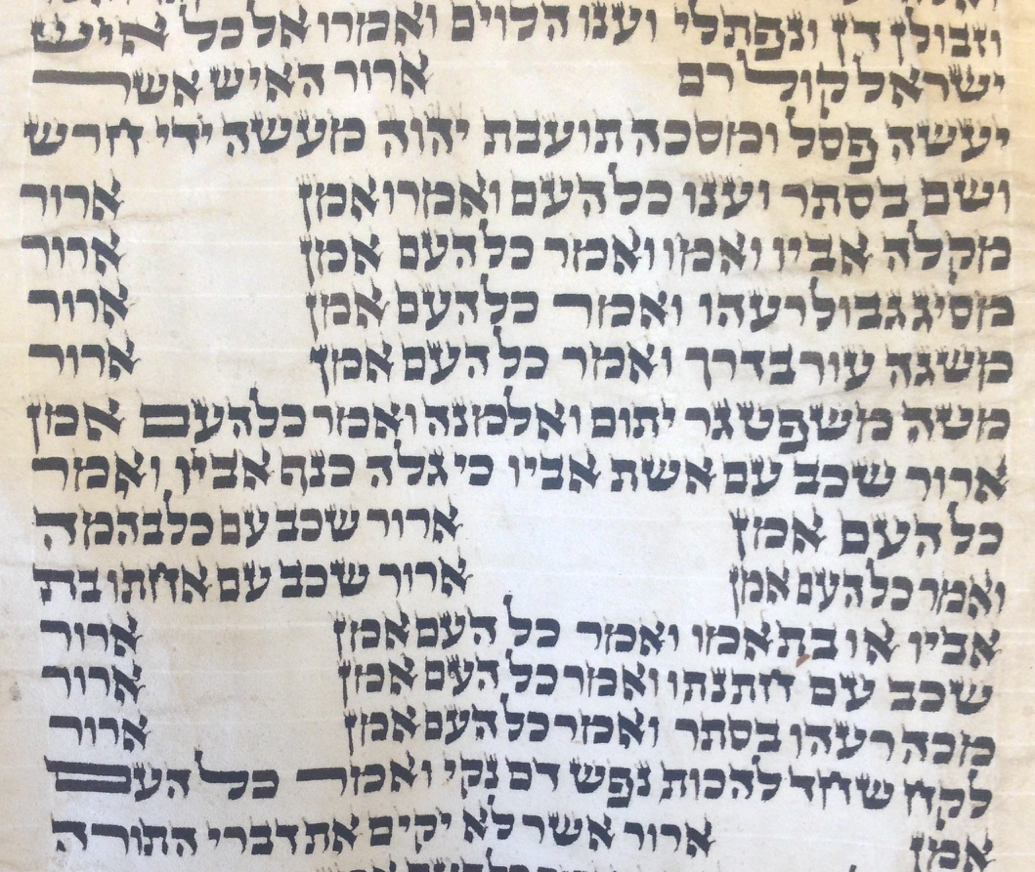 וזבולן דן ונפתלי וענו הלוים ואמרו אל כל איש
ישראל קול רם ארור האיש אשר
יעשה פסל ומסכה תועבת יהוה מעשה ידי חרש
ושם בסתר וענו כל העם ואמרו אמן ארור
מקלה אביו ואמו ואמר כל העם אמן ארור
מסיג גבול רעהו ואמר כל העם אמן ארור
משגה עור בדרך ואמר כל העם אמן ארור
מטה משפט גר יתום ואלמנה ואמר כל העם אמן
ארור שכב עם אשת אביו כי גלה כנף אביו ואמר
כל העם אמן ארור שכב עם כל בהמה
ואמר כל העם אמן ארור שכב עם אחתו בת
אביו או בת אמו ואמר כל העם אמן ארור
שכב עם חתנתו ואמר כל העם אמן ארור
מכה רעהו בסתר ואמר כל העם אמן ארור
לקח שחד להכות נפש דם נקי ואמר כל העם
אמן ארור אשר לא יקים את דברי התורה